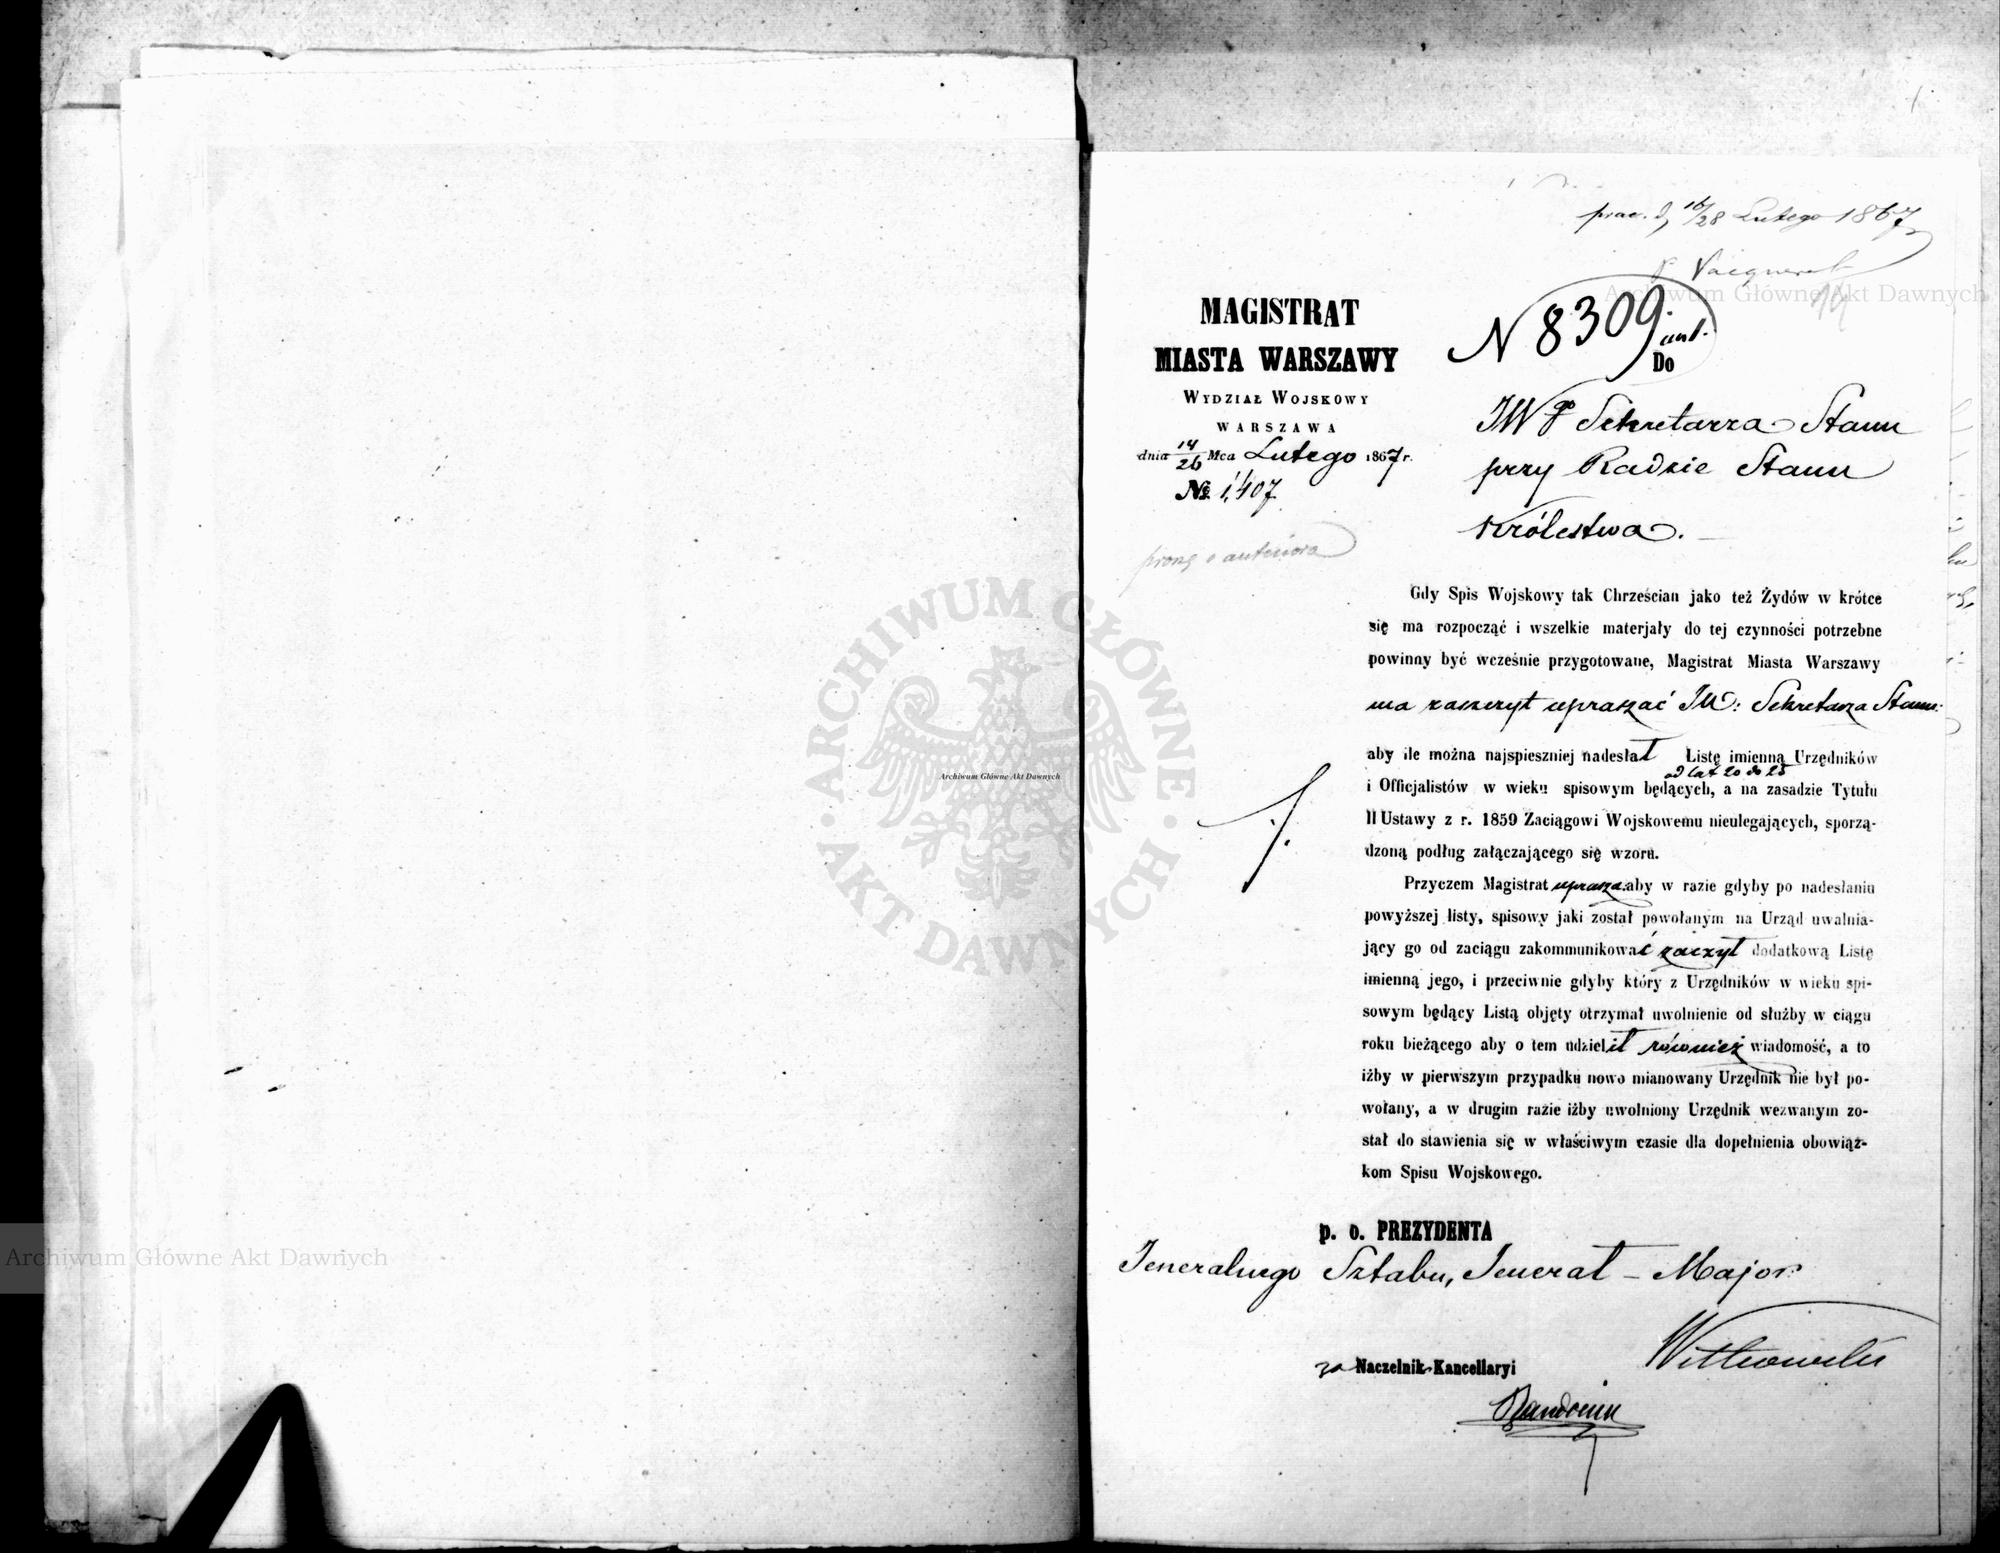 prac. d. 16/28 Lutego 1867
MAGISTRAT
MIASTA WARSZAWY
WYDZIAŁ WOJSKOWY
WARSZAWA
dnia 14/26 Mca Lutego 1867 r.
№ 1,407
proszę o anteriora
N 8309.
ant.
Do
JWgo Sekretarza Stanu
przy Radzie Stanu
Królestwa.
Gdy Spis Wojskowy tak Chrześcian jako też Żydów w krótce
się ma rozpocząć i wszelkie materjały do tej czynności potrzebne
powinny być wcześnie przygotowane, Magistrat Miasta Warszawy
ma zaszczyt upraszać JW: Sekretarza Stanu:
aby ile można najspieszniej nadesłał Listę imienną Urzędników
od lat 20 do 25
i Officjalistów w wieku spisowym będących, a na zasadzie Tytułu
II Ustawy z r. 1859 Zaciągowi Wojskowemu nieulegających, sporzą-
dzoną podług załączającego się wzoru.
Przyczem Magistrat uprasza: aby w razie gdyby po nadesłaniu
powyższej listy, spisowy jaki został powołanym na Urząd uwalnia-
jący go od zaciągu zakommunikować raczył dodatkową Listę
imienną jego, i przeciwnie gdyby który z Urzędników w wieku spi-
sowym będący Listą objęty otrzymał uwolnienie od służby w ciągu
roku bieżącego aby o tem udzielił również wiadomość, a to
iżby w pierwszym przypadku nowo mianowany Urzędnik nie był po-
wołany, a w drugim razie iżby uwolniony Urzędnik wezwanym zo-
stał do stawienia się w właściwym czasie dla dopełnienia obowiąz-
kom Spisu Wojskowego.
p. o. PREZYDENTA
Jeneralnego Sztabu, Jenerał-Major
Witkowski
za Naczelnik Kancellaryi
Archiwum Główne Akt Dawnych
ARCHIWUM GŁÓWNE AKT DAWNYCH
Archiwum Główne Akt Dawnych
Archiwum Główne Akt Dawnych